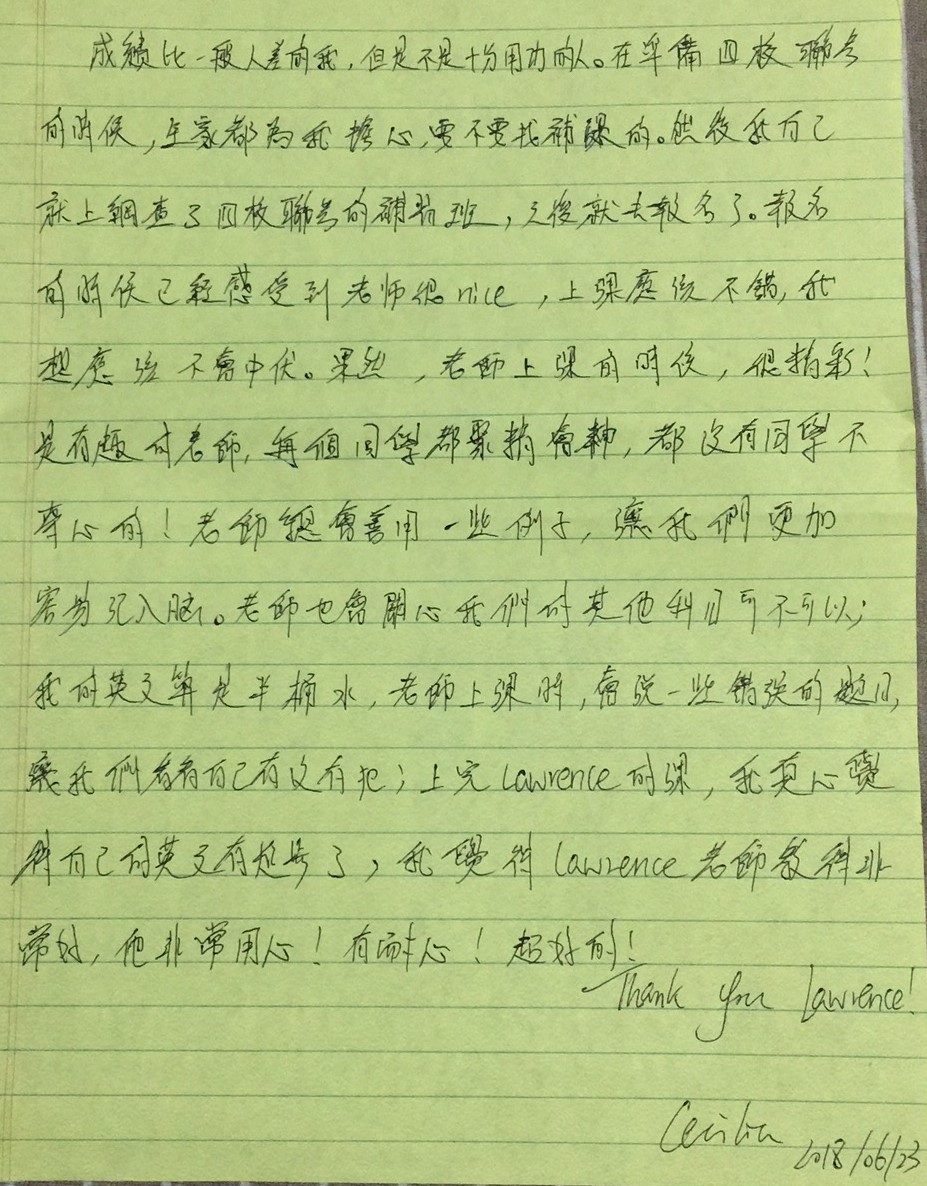 成績比一般人差的我，但是不是十分用功的人。在準備四校聯考
的時候，全家都為我擔心，要不要找補課的。然後我自己
就上網查了四校聯考的補習班，之後就去報名了。報名
的時候已經感受到老师很nice，上課應该不錯，我
想應该不會中伏。果然，老師上课的時候，很精彩！
是有趣的老師，每個同學都聚精會神，都没有同學不
專心的！老師總會善用一些例子，讓我們更加
容易记入脑。老師也會關心我們的其他科目可不可以；
我的英文算是半桶水，老師上课時，會说一些錯误的題目，
讓我們看看自己有没有犯；上完Lawrence的课，我真心覺
得自己的英文有起步了，我覺得Lawrence老師教得非
常好，他非常用心！有耐心！超好的！
Thank you Lawrence!
Cecilia
2018/06/23